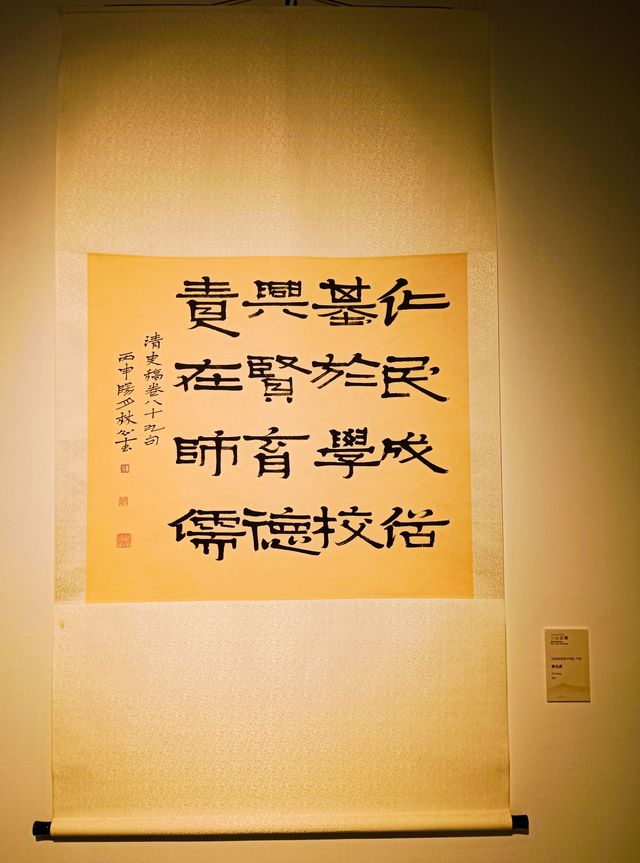 化民成俗
基於學校
興賢育德
責在師儒
清史稿卷八十九句
丙申陽月林公